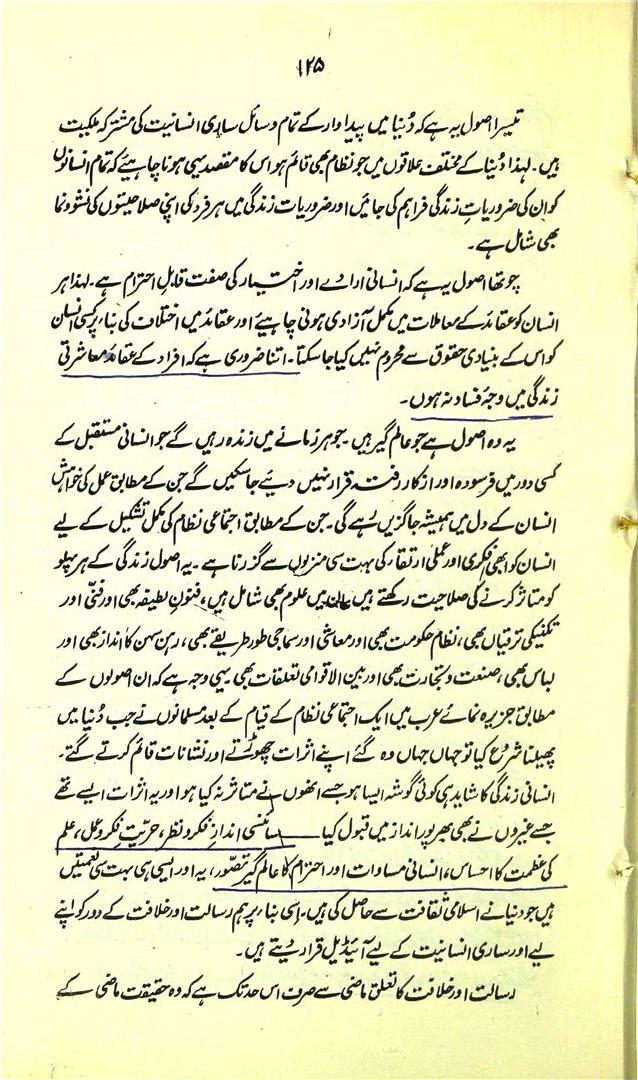 ۱۲۵
تیسرا اصول یہ ہے کہ دُنیا میں پیداوار کے تمام وسائل ساری انسانیت کی مشترکہ ملکیت
ہیں۔ لہٰذا دُنیا کے مختلف علاقوں میں جو نظام بھی قائم ہو اس کا مقصد یہی ہونا چاہیئے کہ تمام انسانوں
کو ان کی ضروریاتِ زندگی فراہم کی جائیں اور ضروریات زندگی میں ہر فرد کی اپنی صلاحیتوں کی نشوونما
بھی شامل ہے۔
چوتھا اصول یہ ہے کہ انسانی ارادے اور اختیار کی صفت قابلِ احترام ہے۔ لہٰذا ہر
انسان کو عقائد کے معاملات میں مکمل آزادی ہونی چاہیئے اور عقائد میں اختلاف کی بناء پر کسی انسان
کو اس کے بنیادی حقوق سے محروم نہیں کیا جا سکتا۔ اتنا ضروری ہے کہ افراد کے عقائد معاشرتی
زندگی میں وجۂ فساد نہ ہوں۔
یہ وہ اصول ہے جو عالم گیر ہیں۔ جو ہر زمانے میں زندہ رہیں گے جو انسانی مستقبل کے
کسی دور میں فرسودہ اور از کار رفتہ قرار نہیں دیئے جا سکیں گے جن کے مطابق عمل کی خواہش
انسان کے دل میں ہمیشہ جاگزیں رہے گی۔ جن کے مطابق اجتماعی نظام کی مکمل تشکیل کے لیے
انسان کو ابھی فکری اور عملی ارتقاء کی بہت سی منزلوں سے گزرنا ہے۔ یہ اصول زندگی کے ہر پہلو
کو متاثر کرنے کی صلاحیت رکھتے ہیں ان میں علوم بھی شامل ہیں، فنونِ لطیفہ بھی اور فنّی اور
تکنیکی ترقیاں بھی، نظام حکومت بھی اور معاشی اور سماجی طور طریقے بھی، رہن سہن کا انداز بھی اور
لباس بھی، صنعت و تجارت بھی اور بین الاقوامی تعلقات بھی۔ یہی وجہ ہے کہ ان اصولوں کے
مطابق جزیرہ نمائے عرب میں ایک اجتماعی نظام کے قیام کے بعد مسلمانوں نے جب دُنیا میں
پھیلنا شروع کیا تو جہاں جہاں وہ گئے اپنے اثرات چھوڑتے اور نشانات قائم کرتے گئے۔
انسانی زندگی کا شاید ہی کوئی گوشہ ایسا ہو جسے انھوں نے متاثر نہ کیا ہو اور یہ اثرات ایسے تھے
جسے غیروں نے بھی بھرپور انداز میں قبول کیا ـــــ سائنسی اندازِ فکر و نظر، حریّتِ فکر و عمل، علم
کی عظمت کا احساس، انسانی مساوات اور احترام کا عالم گیر تصّور، یہ اور ایسی ہی بہت سی نعمتیں
ہیں جو دنیا نے اسلامی ثقافت سے حاصل کی ہیں۔ اِسی بناء پر ہم رسالت اور خلافت کے دور کو اپنے
لیے اور ساری انسانیت کے لیے آئیڈیل قرار دیتے ہیں۔
رسالت اور خلافت کا تعلق ماضی سے صرف اس حد تک ہے کہ وہ حقیقت ماضی کے